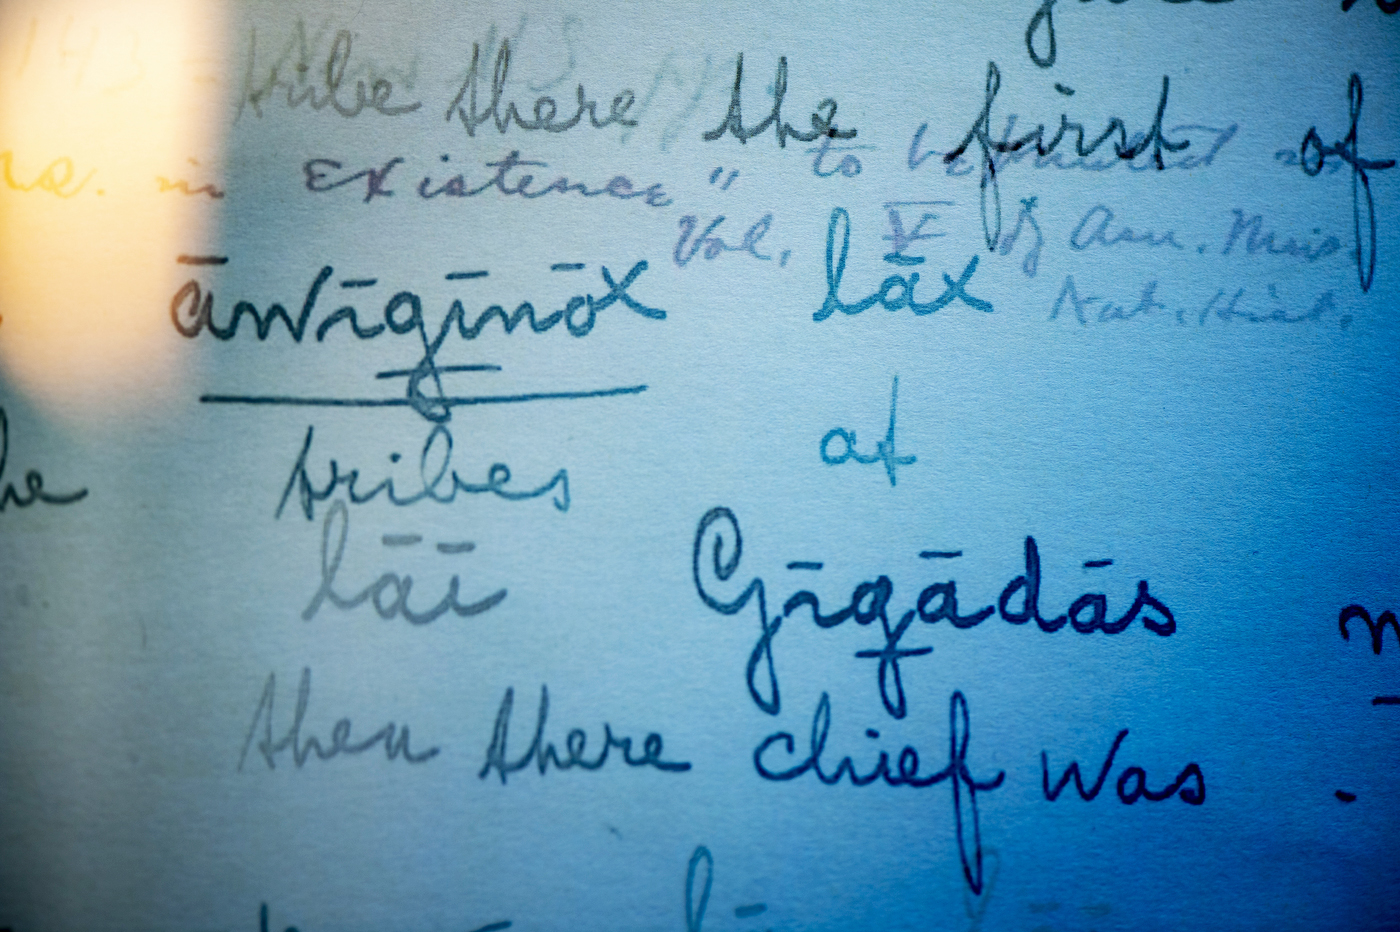 tribe there the first of
in existence" to be
Vol. V of Am. Mus.
Nat. Hist.
āwīg̱īnōx lāx
tribes at
lāī Gīg̱ādās
then there chief was